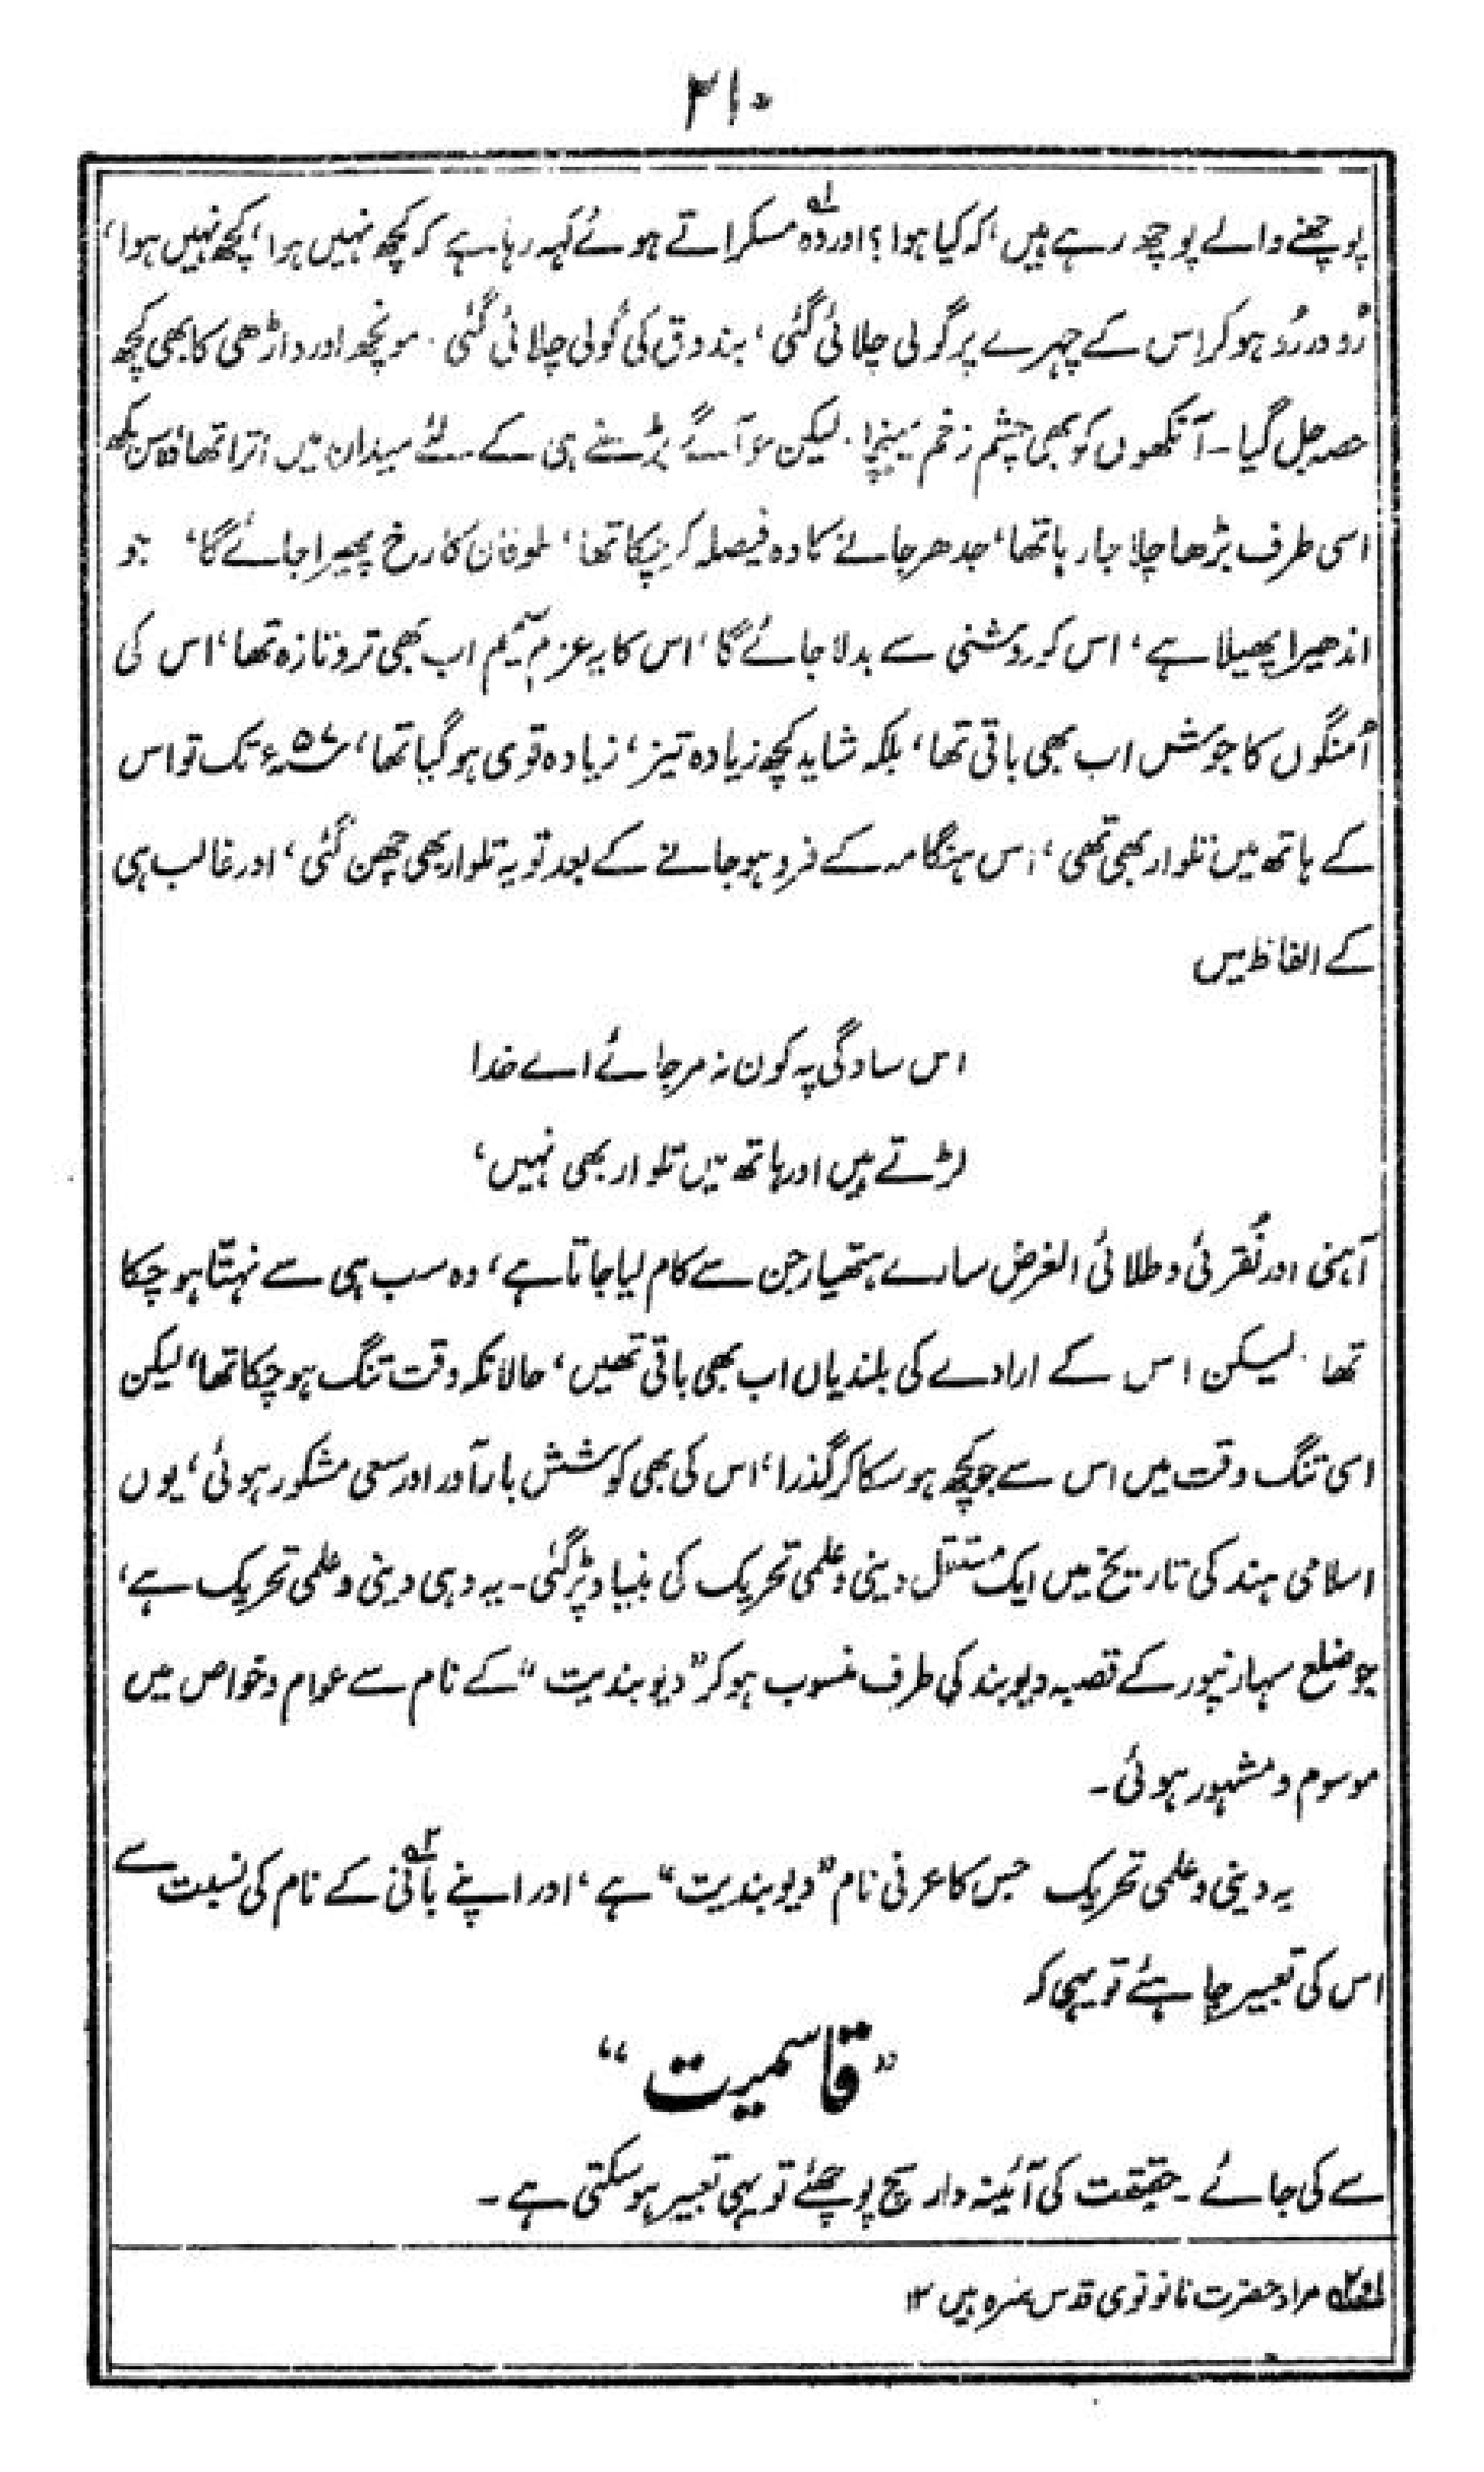 ۳۱۰
پوچھنے والے پوچھ رہے ہیں، کہ کیا ہوا ؟ اور وہ۱ مسکراتے ہوئے کہہ رہا ہے کہ کچھ نہیں ہوا، کچھ نہیں ہوا،
رُو در رُو ہو کر اس کے چہرے پر گولی چلائی گئی، بندوق کی گولی چلائی گئی۔ مونچھ اور داڑھی کا بھی کچھ
حصہ جل گیا۔ آنکھوں کو بھی چشم زخم پہنچا۔ لیکن جو آگے بڑھنے ہی کے لئے میدان میں اترا تھا،
اسی طرف بڑھا چلا جا رہا تھا، جدھر جانے کا وہ فیصلہ کر چکا تھا، طوفان کا رخ پھیرا جائے گا، جو
اندھیرا پھیلا ہے، اس کو روشنی سے بدلا جائے گا، اس کا یہ عزم اب بھی تر و تازہ تھا، اس کی
اُمنگوں کا جوش اب بھی باقی تھا، بلکہ شاید کچھ زیادہ تیز، زیادہ قوی ہو گیا تھا، ۵۷ء تک تو اس
کے ہاتھ میں تلوار بھی تھی، اس ہنگامہ کے فرو ہو جانے کے بعد تو یہ تلوار بھی چھن گئی، اور غالب ہی
کے الفاظ میں
اس سادگی پہ کون نہ مر جائے اے خدا
لڑتے ہیں اور ہاتھ میں تلوار بھی نہیں،
آہنی اور نُقرئی و طلائی الغرض سارے ہتھیار جن سے کام لیا جاتا ہے، وہ سب ہی سے نہتا ہو چکا
تھا۔ لیکن اس کے ارادے کی بلندیاں اب بھی باقی تھیں، حالانکہ وقت تنگ ہو چکا تھا، لیکن
اسی تنگ وقت میں اس سے جو کچھ ہو سکا کر گذرا، اس کی بھی کوشش بارآور اور سعی مشکور ہوئی، یوں
اسلامی ہند کی تاریخ میں ایک مُستقل دینی و علمی تحریک کی بنیاد پڑ گئی۔ یہ وہی دینی و علمی تحریک ہے،
جو ضلع سہارنپور کے قصبہ دیوبند کی طرف منسوب ہو کر ”دیوبندیت“ کے نام سے عوام و خواص میں
موسوم و مشہور ہوئی۔
یہ دینی و علمی تحریک جس کا عرفی نام ”دیوبندیت“ ہے، اور اپنے بانی۲ کے نام کی نسبت سے
اس کی تعبیر چاہئے تو یہی کہ
”قاسمیت“
سے کی جائے۔ حقیقت کی آئینہ دار سچ پوچھئے تو یہی تعبیر ہو سکتی ہے۔
۱و۲ مراد حضرت نانوتوی قدس سرہ ہیں ۱۲